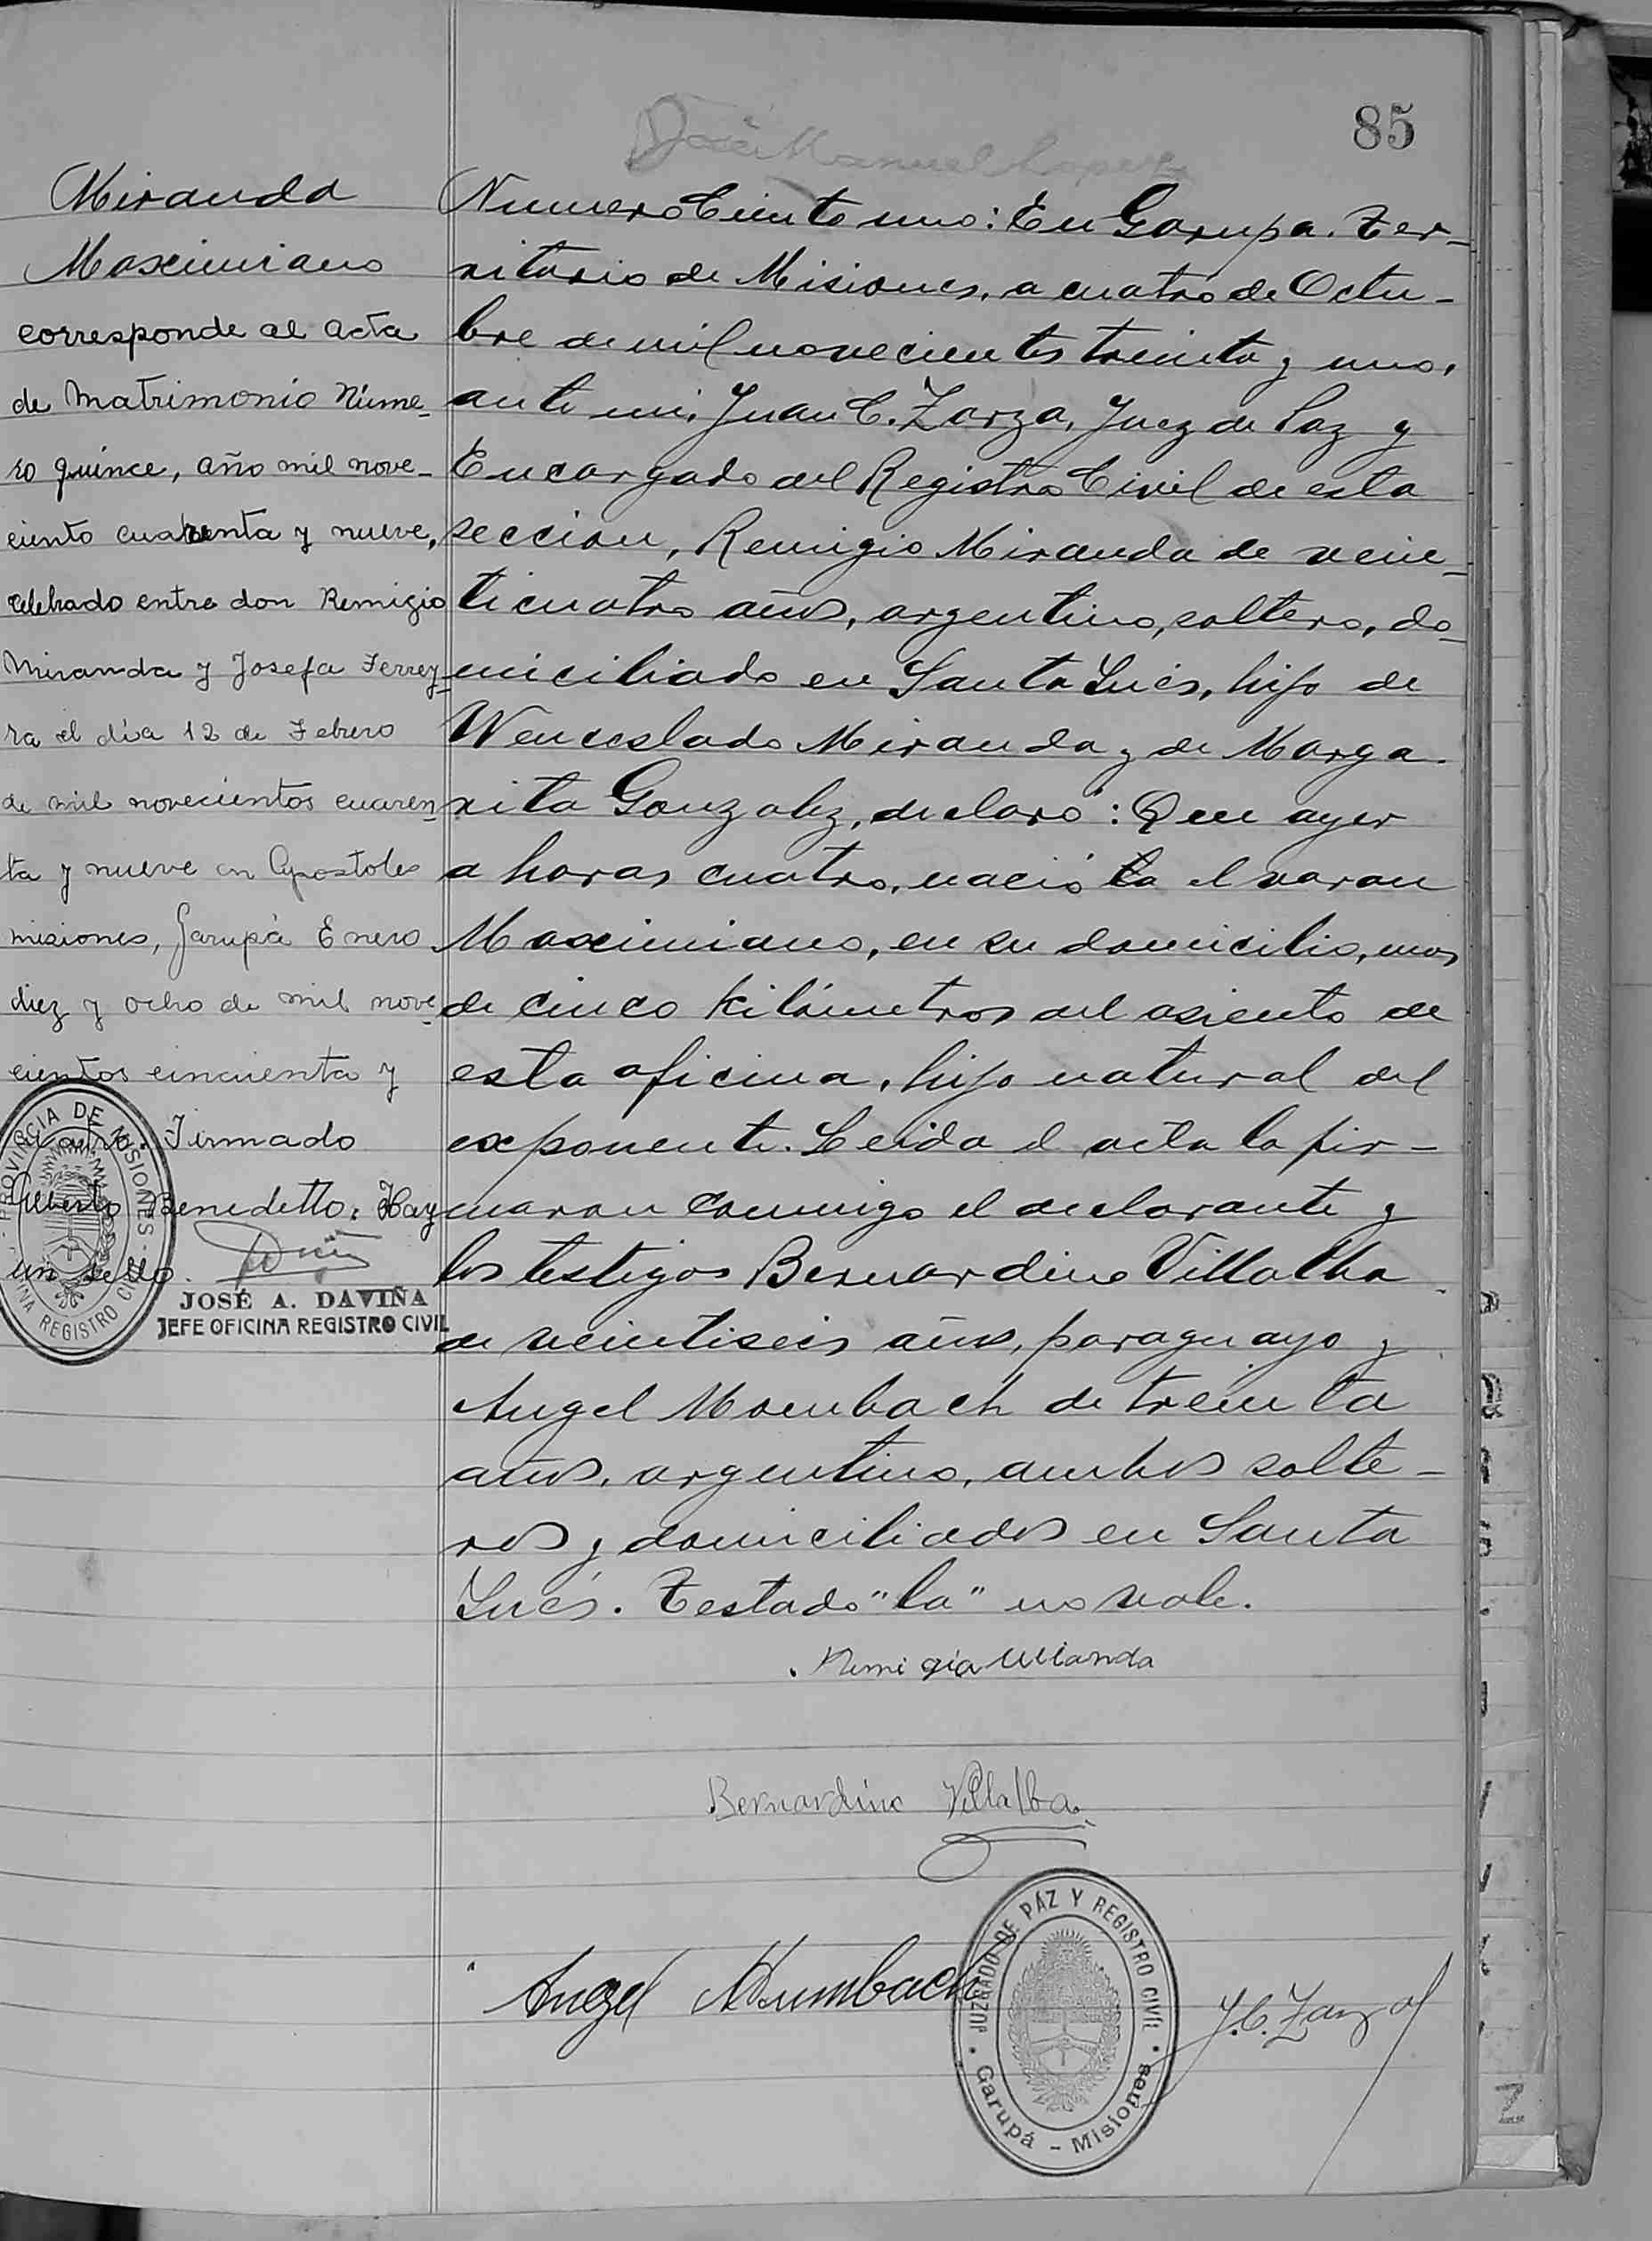 85
José Manuel Lopez
Miranda
Maximiano
corresponde al acta
de Matrimonio Núme-
ro quince, año mil nove-
ciento cuarenta y nueve,
celebrado entre don Remigio
Miranda y Josefa Ferrey-
ra el día 12 de Febrero
de mil novecientos cuaren-
ta y nueve en Apostoles
misiones, Garupá Enero
diez y ocho de mil nove-
cientos cincuenta y
cuatro. Firmado
Alberto Benedetto. Hay
un sello.
PROVINCIA DE MISIONES
REGISTRO CIVIL
JOSÉ A. DAVIÑA
JEFE OFICINA REGISTRO CIVIL
Numero Ciento uno: En Garupa. Ter-
ritorio de Misiones, a cuatro de Octu-
bre de mil novecientos treinta y uno,
ante mi, Juan C. Zarza, Juez de Paz y
Encargado del Registro Civil de esta
seccion, Remigio Miranda de vein-
ticuatro años, argentino, soltero, do-
miciliado en Santa Inés, hijo de
Wenceslado Miranda y de Marga-
rita Gonzalez, declaró: Que ayer
a horas cuatro, nació la el varon
Maximiano, en su domicilio, mas
de cinco kilómetros del asiento de
esta oficina, hijo natural del
exponente. Leida el acta la fir-
maron conmigo el declarante y
los testigos Bernardino Villalba
de veintiseis años, paraguayo y
Angel Mombach de treinta
años, argentino, ambos solte-
ros y domiciliados en Santa
Inés. Testado "la" no vale.
Remigia Miranda
Bernardino Villalba
Angel Mumbach
JUZGADO DE PAZ Y REGISTRO CIVIL
Garupá - Misiones
J. C. Zarza